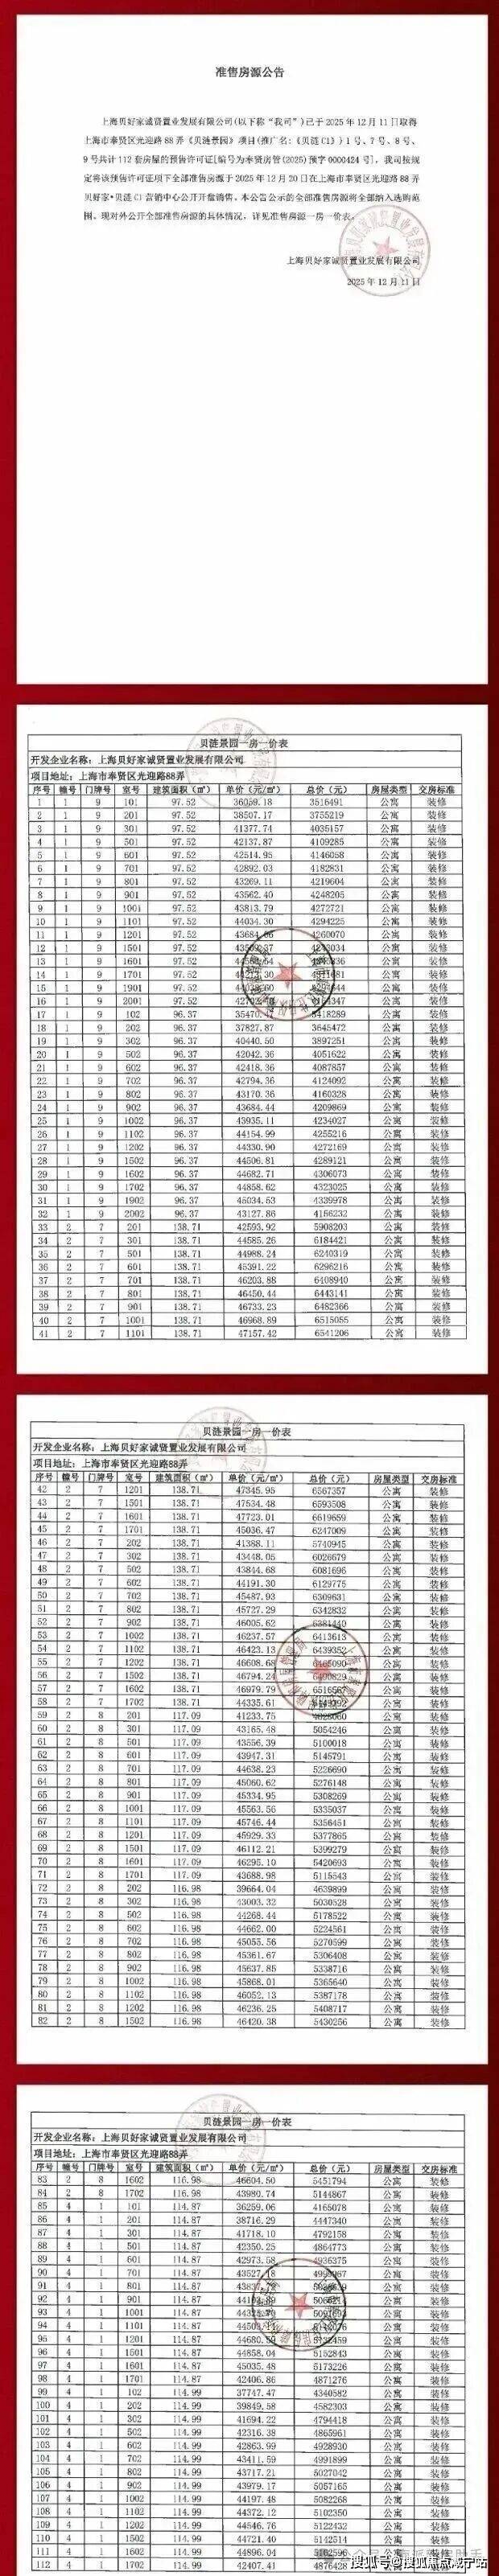 准售房源公告
上海贝好家诚贤置业发展有限公司(以下称“我司”)已于 2025 年 12 月 11 日取得
上海市奉贤区光迎路 88 弄《贝涟景园》项目(推广名:《贝涟 C1》) 1 号、7 号、8 号、
9 号共计 112 套房屋的预售许可证[编号为奉贤房管(2025)预字 0000424 号], 我司按规
定将该预售许可证项下全部准售房源于 2025 年 12 月 20 日在上海市奉贤区光迎路 88 弄
贝好家•贝涟 C1 营销中心公开开盘销售。本公告公示的全部准售房源将全部纳入选购范
围。现对外公开全部准售房源的具体情况，详见准售房源一房一价表。
上海贝好家诚贤置业发展有限公司
2025 年 12 月 11 日
贝涟景园一房一价表
开发企业名称：上海贝好家诚贤置业发展有限公司
项目地址：上海市奉贤区光迎路88弄
序号 幢号 门牌号 室号 建筑面积（㎡） 单价（元/㎡） 总价（元） 房屋类型 交房标准
1 1 9 101 97.52 36059.18 3516491 公寓 装修
2 1 9 201 97.52 38507.17 3755219 公寓 装修
3 1 9 301 97.52 41377.74 4035157 公寓 装修
4 1 9 501 97.52 42137.87 4109285 公寓 装修
5 1 9 601 97.52 42514.95 4146058 公寓 装修
6 1 9 701 97.52 42892.03 4182831 公寓 装修
7 1 9 801 97.52 43269.11 4219604 公寓 装修
8 1 9 901 97.52 43562.40 4248205 公寓 装修
9 1 9 1001 97.52 43813.79 4272721 公寓 装修
10 1 9 1101 97.52 44034.30 4294225 公寓 装修
11 1 9 1201 97.52 4260070 公寓 装修
12 1 9 1501 97.52 公寓 装修
13 1 9 1601 97.52 公寓 装修
14 1 9 1701 97.52 公寓 装修
15 1 9 1901 97.52 公寓 装修
16 1 9 2001 97.52 公寓 装修
17 1 9 102 96.37 3418289 公寓 装修
18 1 9 202 96.37 37827.87 3645472 公寓 装修
19 1 9 302 96.37 40440.50 3897251 公寓 装修
20 1 9 502 96.37 42042.36 4051622 公寓 装修
21 1 9 602 96.37 42418.36 4087857 公寓 装修
22 1 9 702 96.37 42794.36 4124092 公寓 装修
23 1 9 802 96.37 43170.36 4160328 公寓 装修
24 1 9 902 96.37 43684.44 4209869 公寓 装修
25 1 9 1002 96.37 43935.11 4234027 公寓 装修
26 1 9 1102 96.37 44154.99 4255216 公寓 装修
27 1 9 1202 96.37 44330.90 4272169 公寓 装修
28 1 9 1502 96.37 44506.81 4289121 公寓 装修
29 1 9 1602 96.37 44682.71 4306073 公寓 装修
30 1 9 1702 96.37 44858.62 4323025 公寓 装修
31 1 9 1902 96.37 45034.53 4339978 公寓 装修
32 1 9 2002 96.37 43127.86 4156232 公寓 装修
33 2 7 201 138.71 42593.92 5908203 公寓 装修
34 2 7 301 138.71 44585.26 6184421 公寓 装修
35 2 7 501 138.71 44988.24 6240319 公寓 装修
36 2 7 601 138.71 45391.22 6296216 公寓 装修
37 2 7 701 138.71 46203.88 6408940 公寓 装修
38 2 7 801 138.71 46450.44 6443141 公寓 装修
39 2 7 901 138.71 46733.23 6482366 公寓 装修
40 2 7 1001 138.71 46968.89 6515055 公寓 装修
41 2 7 1101 138.71 47157.42 6541206 公寓 装修
贝涟景园一房一价表
开发企业名称：上海贝好家诚贤置业发展有限公司
项目地址：上海市奉贤区光迎路88弄
序号 幢号 门牌号 室号 建筑面积（㎡） 单价（元/㎡） 总价（元） 房屋类型 交房标准
42 2 7 1201 138.71 47345.95 6567357 公寓 装修
43 2 7 1501 138.71 47534.48 6593508 公寓 装修
44 2 7 1601 138.71 47723.01 6619659 公寓 装修
45 2 7 1701 138.71 45036.47 6247009 公寓 装修
46 2 7 202 138.71 41388.11 5740945 公寓 装修
47 2 7 302 138.71 43448.05 6026679 公寓 装修
48 2 7 502 138.71 43844.68 6081696 公寓 装修
49 2 7 602 138.71 44191.30 6129775 公寓 装修
50 2 7 702 138.71 45487.93 6309631 公寓 装修
51 2 7 802 138.71 45727.29 6342832 公寓 装修
52 2 7 902 138.71 46005.62 6381440 公寓 装修
53 2 7 1002 138.71 46237.57 6413613 公寓 装修
54 2 7 1102 138.71 46423.13 6439352 公寓 装修
55 2 7 1202 138.71 46608.68 6465090 公寓 装修
56 2 7 1502 138.71 46794.24 6490829 公寓 装修
57 2 7 1602 138.71 46979.79 公寓 装修
58 2 7 1702 138.71 44335.61 公寓 装修
59 2 8 201 117.09 41233.75 公寓 装修
60 2 8 301 117.09 43165.48 5054246 公寓 装修
61 2 8 501 117.09 43556.39 5100018 公寓 装修
62 2 8 601 117.09 43947.31 5145791 公寓 装修
63 2 8 701 117.09 44638.23 5226690 公寓 装修
64 2 8 801 117.09 45060.62 5276148 公寓 装修
65 2 8 901 117.09 45334.95 5308269 公寓 装修
66 2 8 1001 117.09 45563.56 5335037 公寓 装修
67 2 8 1101 117.09 45746.44 5356451 公寓 装修
68 2 8 1201 117.09 45929.33 5377865 公寓 装修
69 2 8 1501 117.09 46112.21 5399279 公寓 装修
70 2 8 1601 117.09 46295.10 5420693 公寓 装修
71 2 8 1701 117.09 43688.98 5115543 公寓 装修
72 2 8 202 116.98 39664.04 4639899 公寓 装修
73 2 8 302 116.98 43003.32 5030528 公寓 装修
74 2 8 502 116.98 44268.44 5178522 公寓 装修
75 2 8 602 116.98 44662.00 5224561 公寓 装修
76 2 8 702 116.98 45055.56 5270599 公寓 装修
77 2 8 802 116.98 45361.67 5306408 公寓 装修
78 2 8 902 116.98 45637.85 5338716 公寓 装修
79 2 8 1002 116.98 45868.01 5365640 公寓 装修
80 2 8 1102 116.98 46052.13 5387178 公寓 装修
81 2 8 1202 116.98 46236.25 5408717 公寓 装修
82 2 8 1502 116.98 46420.38 5430256 公寓 装修
贝涟景园一房一价表
开发企业名称：上海贝好家诚贤置业发展有限公司
项目地址：上海市奉贤区光迎路88弄
序号 幢号 门牌号 室号 建筑面积（㎡） 单价（元/㎡） 总价（元） 房屋类型 交房标准
83 2 8 1602 116.98 46604.50 5451794 公寓 装修
84 2 8 1702 116.98 43980.74 5144867 公寓 装修
85 4 1 101 114.87 36259.06 4165078 公寓 装修
86 4 1 201 114.87 38716.29 4447340 公寓 装修
87 4 1 301 114.87 41718.10 4792158 公寓 装修
88 4 1 501 114.87 42350.25 4864773 公寓 装修
89 4 1 601 114.87 42973.58 4936375 公寓 装修
90 4 1 701 114.87 公寓 装修
91 4 1 801 114.87 公寓 装修
92 4 1 901 114.87 公寓 装修
93 4 1 1001 114.87 公寓 装修
94 4 1 1101 114.87 公寓 装修
95 4 1 1201 114.87 44680.59 公寓 装修
96 4 1 1501 114.87 44858.04 5152843 公寓 装修
97 4 1 1601 114.87 45035.48 5173226 公寓 装修
98 4 1 1701 114.87 42406.86 4871276 公寓 装修
99 4 1 102 114.99 37747.47 4340582 公寓 装修
100 4 1 202 114.99 39849.58 4582303 公寓 装修
101 4 1 302 114.99 41694.22 4794418 公寓 装修
102 4 1 502 114.99 42316.38 4865961 公寓 装修
103 4 1 602 114.99 42863.99 4928930 公寓 装修
104 4 1 702 114.99 43411.59 4991899 公寓 装修
105 4 1 802 114.99 43717.21 5027042 公寓 装修
106 4 1 902 114.99 43979.17 5057165 公寓 装修
107 4 1 1002 114.99 44197.48 5082268 公寓 装修
108 4 1 1102 114.99 44372.12 5102350 公寓 装修
109 4 1 1202 114.99 44546.76 5122432 公寓 装修
110 4 1 1502 114.99 44721.40 5142514 公寓 装修
111 4 1 1602 114.99 44896.04 5162596 公寓 装修
112 4 1 1702 114.99 42407.41 4876428 公寓 装修
搜狐号@搜狐焦点咸宁站